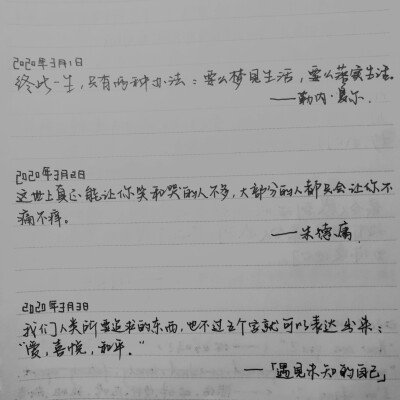 2020年3月1日
终此一生，只有两种办法：要么梦见生活，要么落实生活。
——勒内·夏尔.
2020年3月2日
这世上真正能让你笑和哭的人不多，大部分的人都只会让你不
痛不痒。
——朱德庸
2020年3月3日
我们人类所要追求的东西，也不过五个字就可以表达出来：
“爱，喜悦，和平。”
——「遇见未知的自己」